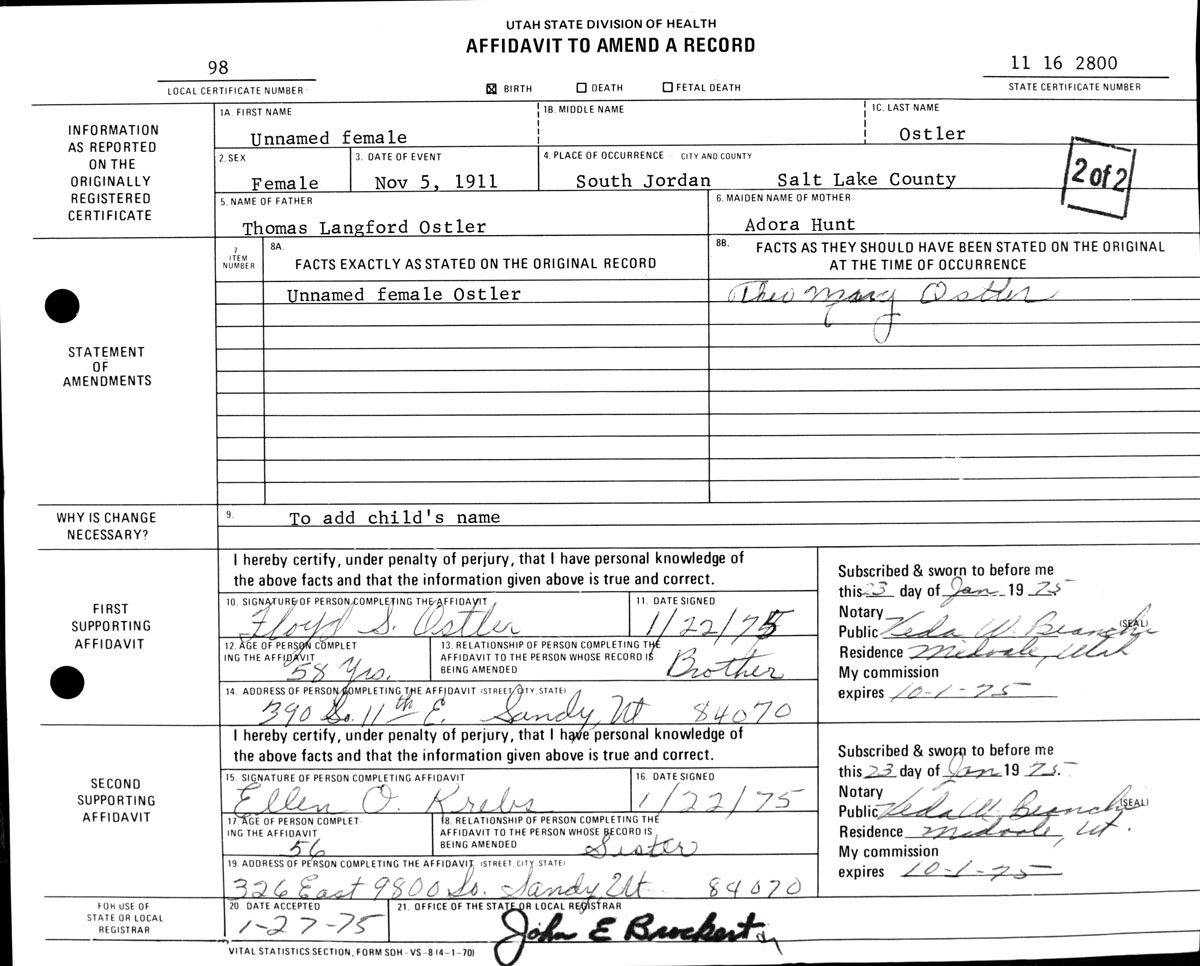 UTAH STATE DIVISION OF HEALTH
AFFIDAVIT TO AMEND A RECORD
98
LOCAL CERTIFICATE NUMBER
☒ BIRTH ☐ DEATH ☐ FETAL DEATH
11 16 2800
STATE CERTIFICATE NUMBER
INFORMATION
AS REPORTED
ON THE
ORIGINALLY
REGISTERED
CERTIFICATE
1A. FIRST NAME
Unnamed female
1B. MIDDLE NAME
1C. LAST NAME
Ostler
2. SEX
Female
3. DATE OF EVENT
Nov 5, 1911
4. PLACE OF OCCURRENCE CITY AND COUNTY
South Jordan Salt Lake County
2 of 2
5. NAME OF FATHER
Thomas Langford Ostler
6. MAIDEN NAME OF MOTHER
Adora Hunt
STATEMENT
OF
AMENDMENTS
7
ITEM
NUMBER
8A.
FACTS EXACTLY AS STATED ON THE ORIGINAL RECORD
8B. FACTS AS THEY SHOULD HAVE BEEN STATED ON THE ORIGINAL
AT THE TIME OF OCCURRENCE
Unnamed female Ostler
Theo Mary Ostler
WHY IS CHANGE
NECESSARY?
9. To add child's name
FIRST
SUPPORTING
AFFIDAVIT
I hereby certify, under penalty of perjury, that I have personal knowledge of
the above facts and that the information given above is true and correct.
10. SIGNATURE OF PERSON COMPLETING THE AFFIDAVIT
Floyd S. Ostler
11. DATE SIGNED
1/22/75
12. AGE OF PERSON COMPLET
ING THE AFFIDAVIT
58 Yrs.
13. RELATIONSHIP OF PERSON COMPLETING THE
AFFIDAVIT TO THE PERSON WHOSE RECORD IS
BEING AMENDED
Brother
14. ADDRESS OF PERSON COMPLETING THE AFFIDAVIT (STREET, CITY, STATE)
390 So. 11th E. Sandy, Ut 84070
Subscribed & sworn to before me
this 23 day of Jan 19 75
Notary
Public Veda W. Bianchi (SEAL)
Residence Midvale, Utah
My commission
expires 10-1-75
SECOND
SUPPORTING
AFFIDAVIT
I hereby certify, under penalty of perjury, that I have personal knowledge of
the above facts and that the information given above is true and correct.
15. SIGNATURE OF PERSON COMPLETING AFFIDAVIT
Ellen O. Krebs
16. DATE SIGNED
1/22/75
17. AGE OF PERSON COMPLET
ING THE AFFIDAVIT
56
18. RELATIONSHIP OF PERSON COMPLETING THE
AFFIDAVIT TO THE PERSON WHOSE RECORD IS
BEING AMENDED
Sister
19. ADDRESS OF PERSON COMPLETING THE AFFIDAVIT (STREET, CITY, STATE)
326 East 9800 So. Sandy, Ut. 84070
Subscribed & sworn to before me
this 23 day of Jan 19 75.
Notary
Public Veda W. Bianchi (SEAL)
Residence Midvale, Ut.
My commission
expires 10-1-75
FOR USE OF
STATE OR LOCAL
REGISTRAR
20. DATE ACCEPTED
1-27-75
21. OFFICE OF THE STATE OR LOCAL REGISTRAR
John E Brockert
VITAL STATISTICS SECTION, FORM SDH - VS - 8 (4-1-70)